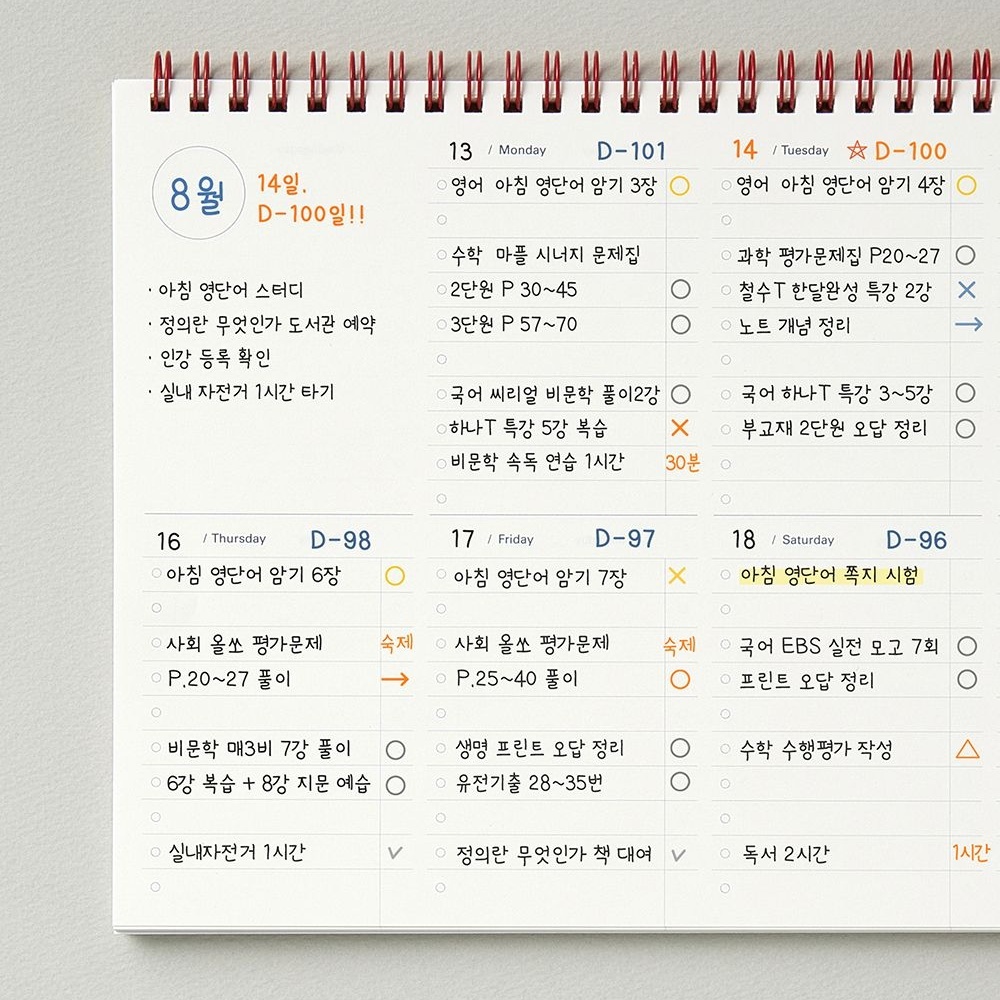 8월
14일.
D-100일!!
· 아침 영단어 스터디
· 정의란 무엇인가 도서관 예약
· 인강 등록 확인
· 실내 자전거 1시간 타기
13 / Monday D-101
영어 아침 영단어 암기 3장 ○
수학 마플 시너지 문제집
2단원 P 30~45 ○
3단원 P 57~70 ○
국어 씨리얼 비문학 풀이2강 ○
하나T 특강 5강 복습 ×
비문학 속독 연습 1시간 30분
14 / Tuesday ☆ D-100
영어 아침 영단어 암기 4장 ○
과학 평가문제집 P20~27 ○
철수T 한달완성 특강 2강 ×
노트 개념 정리 →
국어 하나T 특강 3~5강 ○
부교재 2단원 오답 정리 ○
16 / Thursday D-98
아침 영단어 암기 6장 ○
사회 올쏘 평가문제 숙제
P.20~27 풀이 →
비문학 매3비 7강 풀이 ○
6강 복습 + 8강 지문 예습 ○
실내자전거 1시간 ✓
17 / Friday D-97
아침 영단어 암기 7장 ×
사회 올쏘 평가문제 숙제
P.25~40 풀이 ○
생명 프린트 오답 정리 ○
유전기출 28~35번 ○
정의란 무엇인가 책 대여 ✓
18 / Saturday D-96
아침 영단어 쪽지 시험
국어 EBS 실전 모고 7회 ○
프린트 오답 정리 ○
수학 수행평가 작성 △
독서 2시간 1시간